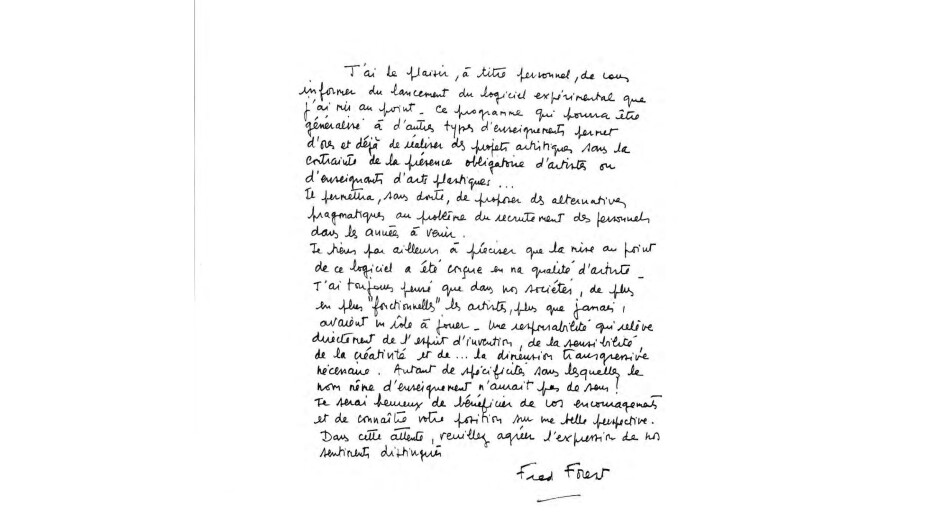 J'ai le plaisir, à titre personnel, de vous
informer du lancement du logiciel expérimental que
j'ai mis au point - Ce programme qui pourra être
généralisé à d'autres types d'enseignements permet
d'ores et déjà de réaliser des projets artistiques sans la
contrainte de la présence obligatoire d'artistes ou
d'enseignants d'arts plastiques...
Il permettra, sans doute, de proposer des alternatives
pragmatiques au problème du recrutement des personnels
dans les années à venir.
Je tiens par ailleurs à préciser que la mise au point
de ce logiciel a été conçue en ma qualité d'artiste -
J'ai toujours pensé que dans nos sociétés, de plus
en plus "fonctionnelles" les artistes, plus que jamais,
avaient un rôle à jouer - Une responsabilité qui relève
directement de l'esprit d'invention, de la sensibilité
de la créativité et de... la dimension transgressive
nécessaire. Autant de spécificités sans lesquelles le
nom même d'enseignement n'aurait pas de sens!
Je serai heureux de bénéficier de vos encouragements
et de connaître votre position sur une telle perspective.
Dans cette attente, veuillez agréer l'expression de nos
sentiments distingués
Fred Forest